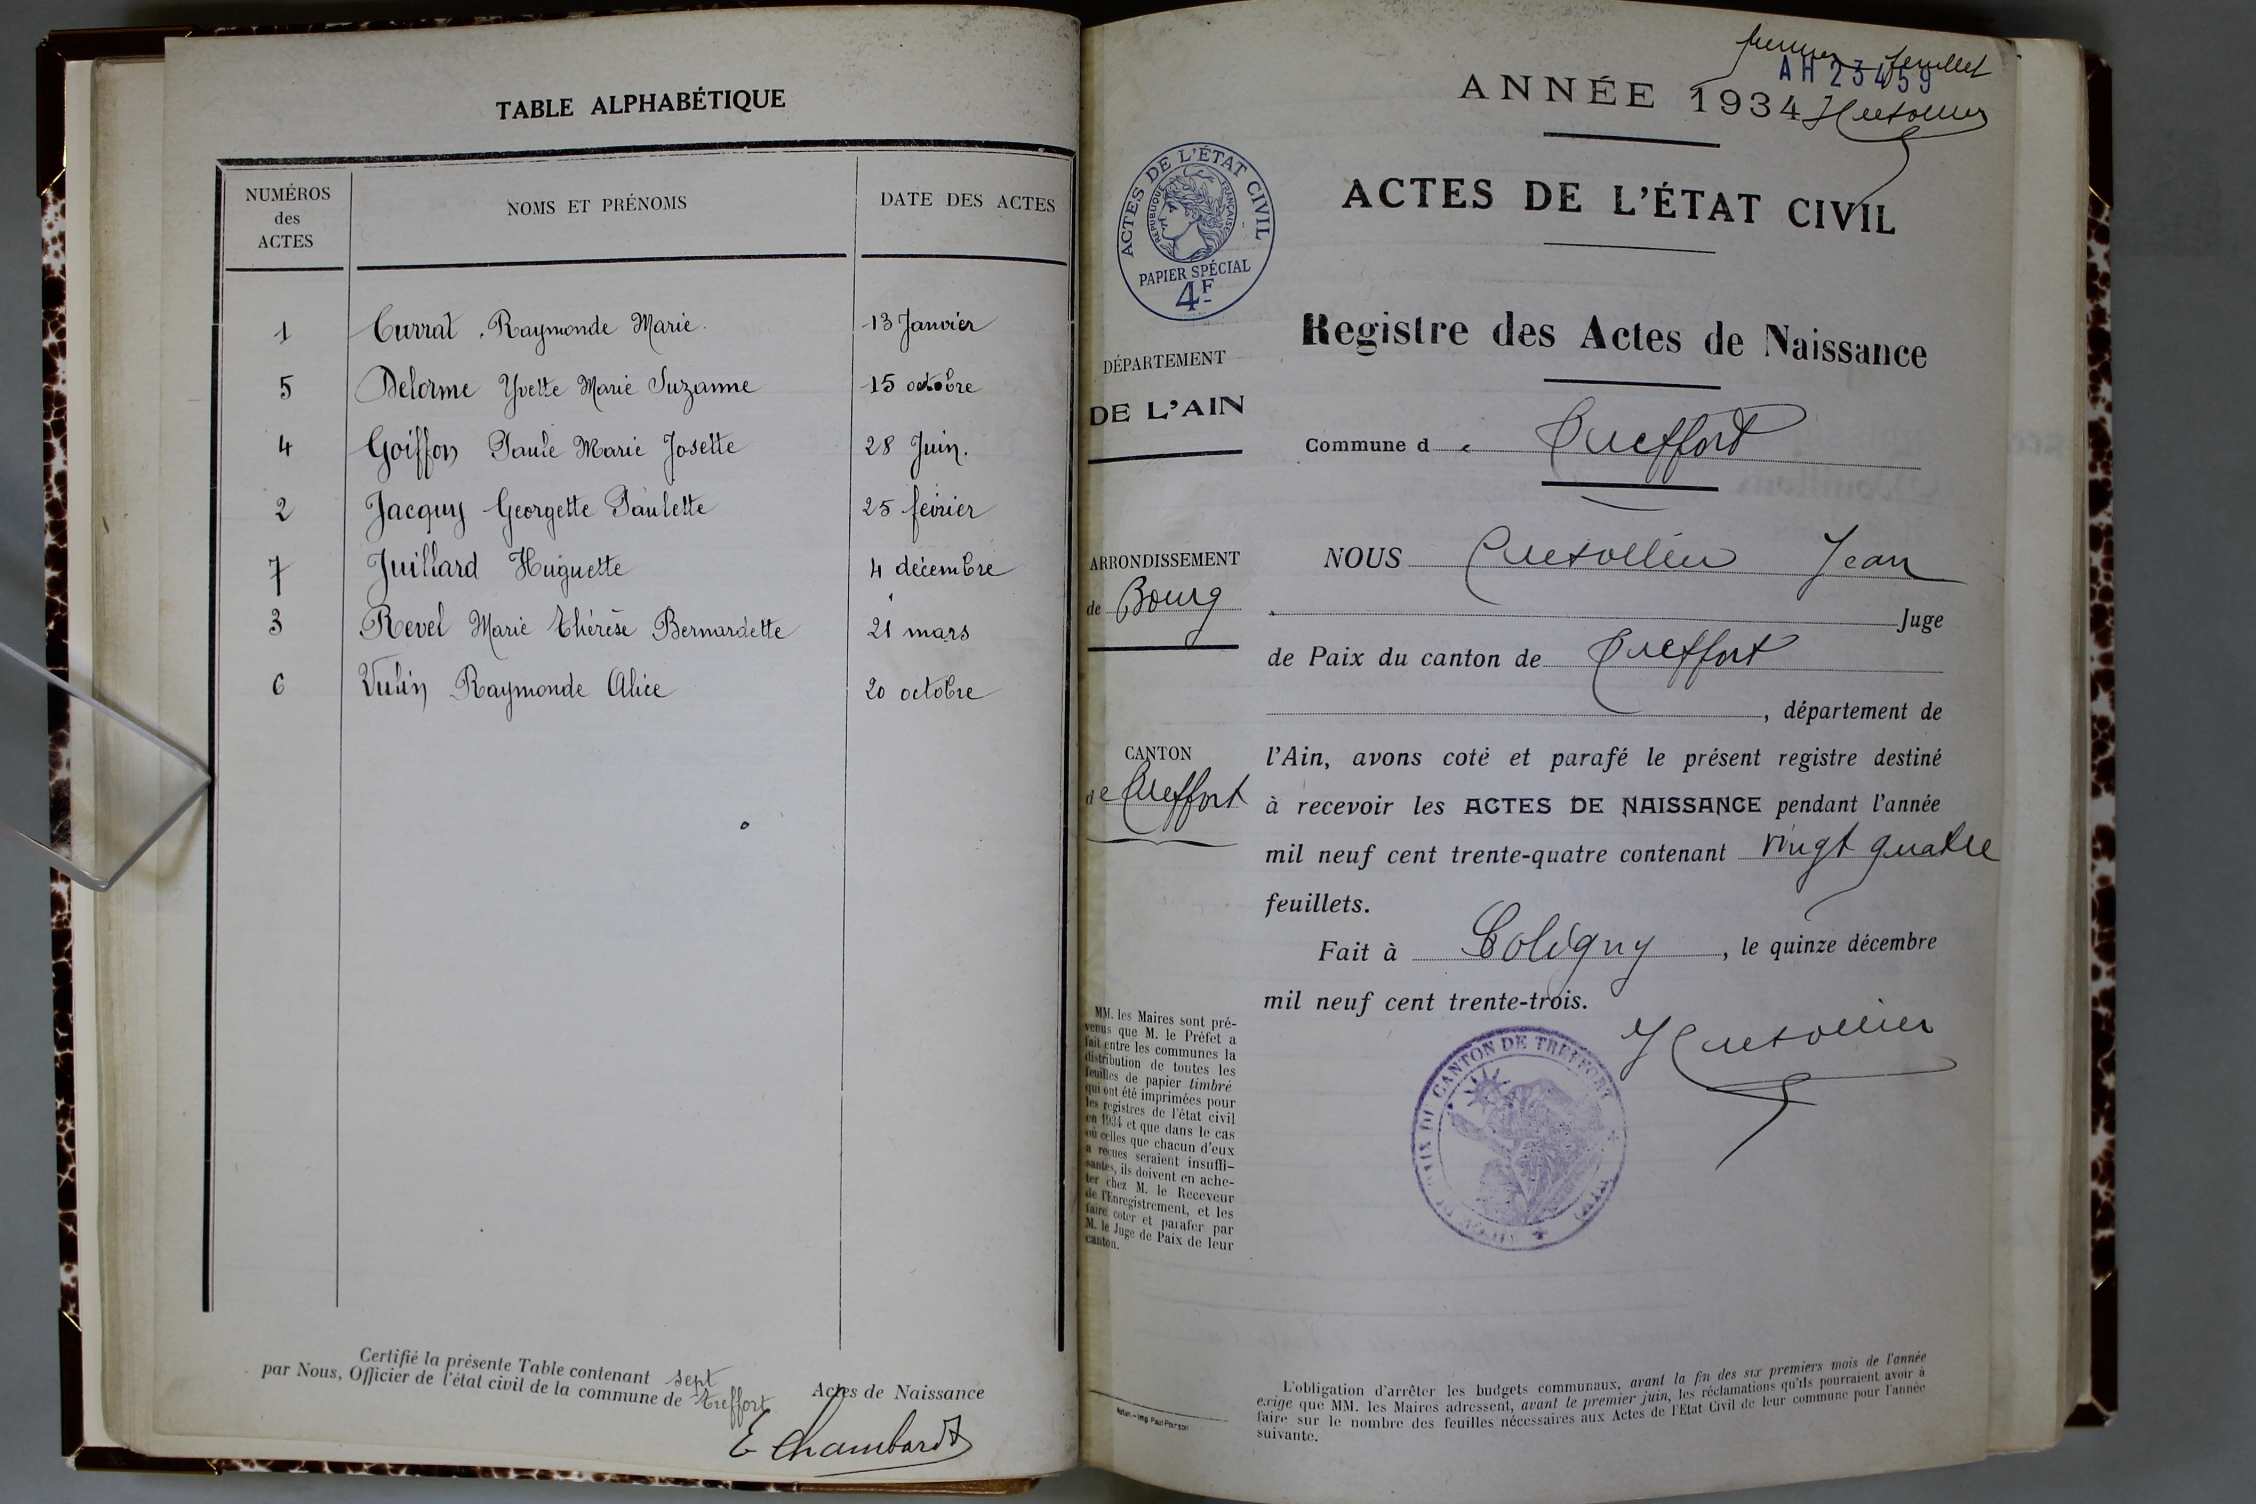 TABLE ALPHABÉTIQUE
NUMÉROS
des
ACTES
NOMS ET PRÉNOMS
DATE DES ACTES
1 Currat Raymonde Marie 13 Janvier
5 Delorme Yvette Marie Suzanne 15 octobre
4 Goiffon Paule Marie Josette 28 Juin.
2 Jacquy Georgette Paulette 25 février
7 Juillard Huguette 4 décembre
3 Revel Marie Thérèse Bernardette 21 mars
6 Vulin Raymonde Alice 20 octobre
Certifié la présente Table contenant sept Actes de Naissance
par Nous, Officier de l'état civil de la commune de Treffort
E Chambard
premier feuillet
AH 23459
ANNÉE 1934
ACTES DE L'ÉTAT CIVIL
ACTES DE L'ÉTAT CIVIL
RÉPUBLIQUE FRANÇAISE
PAPIER SPÉCIAL
4F
Registre des Actes de Naissance
DÉPARTEMENT
DE L'AIN
Commune de Treffort
ARRONDISSEMENT
de Bourg
CANTON
de Treffort
MM. les Maires sont pré-
venus que M. le Préfet a
fait entre les communes la
distribution de toutes les
feuilles de papier timbré
qui ont été imprimées pour
les registres de l'état civil
en 1934 et que dans le cas
où celles que chacun d'eux
a reçues seraient insuffi-
santes, ils doivent en ache-
ter chez M. le Receveur
de l'Enregistrement, et les
faire coter et parafer par
M. le Juge de Paix de leur
canton.
NOUS Jean
Juge
de Paix du canton de Treffort
, département de
l'Ain, avons coté et parafé le présent registre destiné
à recevoir les ACTES DE NAISSANCE pendant l'année
mil neuf cent trente-quatre contenant vingt quatre
feuillets.
Fait à Coligny, le quinze décembre
mil neuf cent trente-trois.
PAIX DU CANTON DE TREFFORT
L'obligation d'arrêter les budgets communaux, avant la fin des six premiers mois de l'année
exige que MM. les Maires adressent, avant le premier juin, les réclamations qu'ils pourraient avoir à
faire sur le nombre des feuilles nécessaires aux Actes de l'Etat Civil de leur commune pour l'année
suivante.